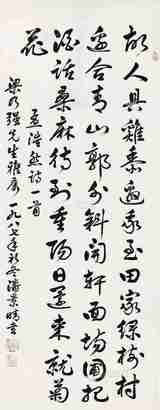 故人具雞黍邀我至田家綠樹村
邊合青山郭外斜開軒面場圃把
酒話桑麻待到重陽日還來就菊
花
孟浩然詩一首
先生雅属 一九八七年初冬潘景晴書